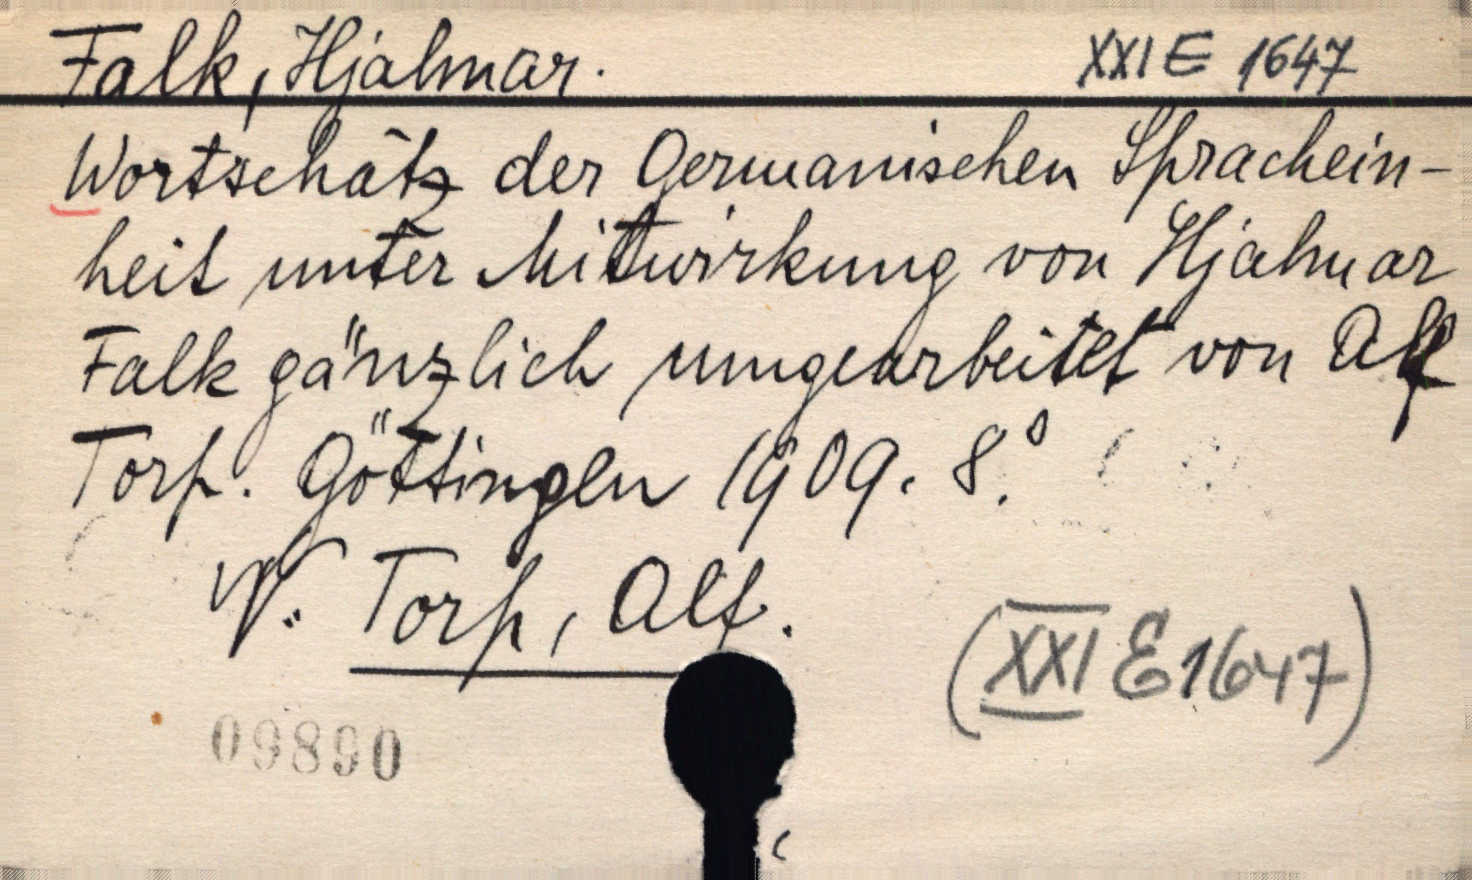 Falk, Hjalmar.
XXI E 1647
Wortschatz der Germanischen Sprachein-
heit unter Mitwirkung von Hjalmar
Falk gänzlich umgearbeitet von Alf
Torp. Göttingen 1909. 8.°
V. Torp, Alf.
(XXI E 1647)
09890